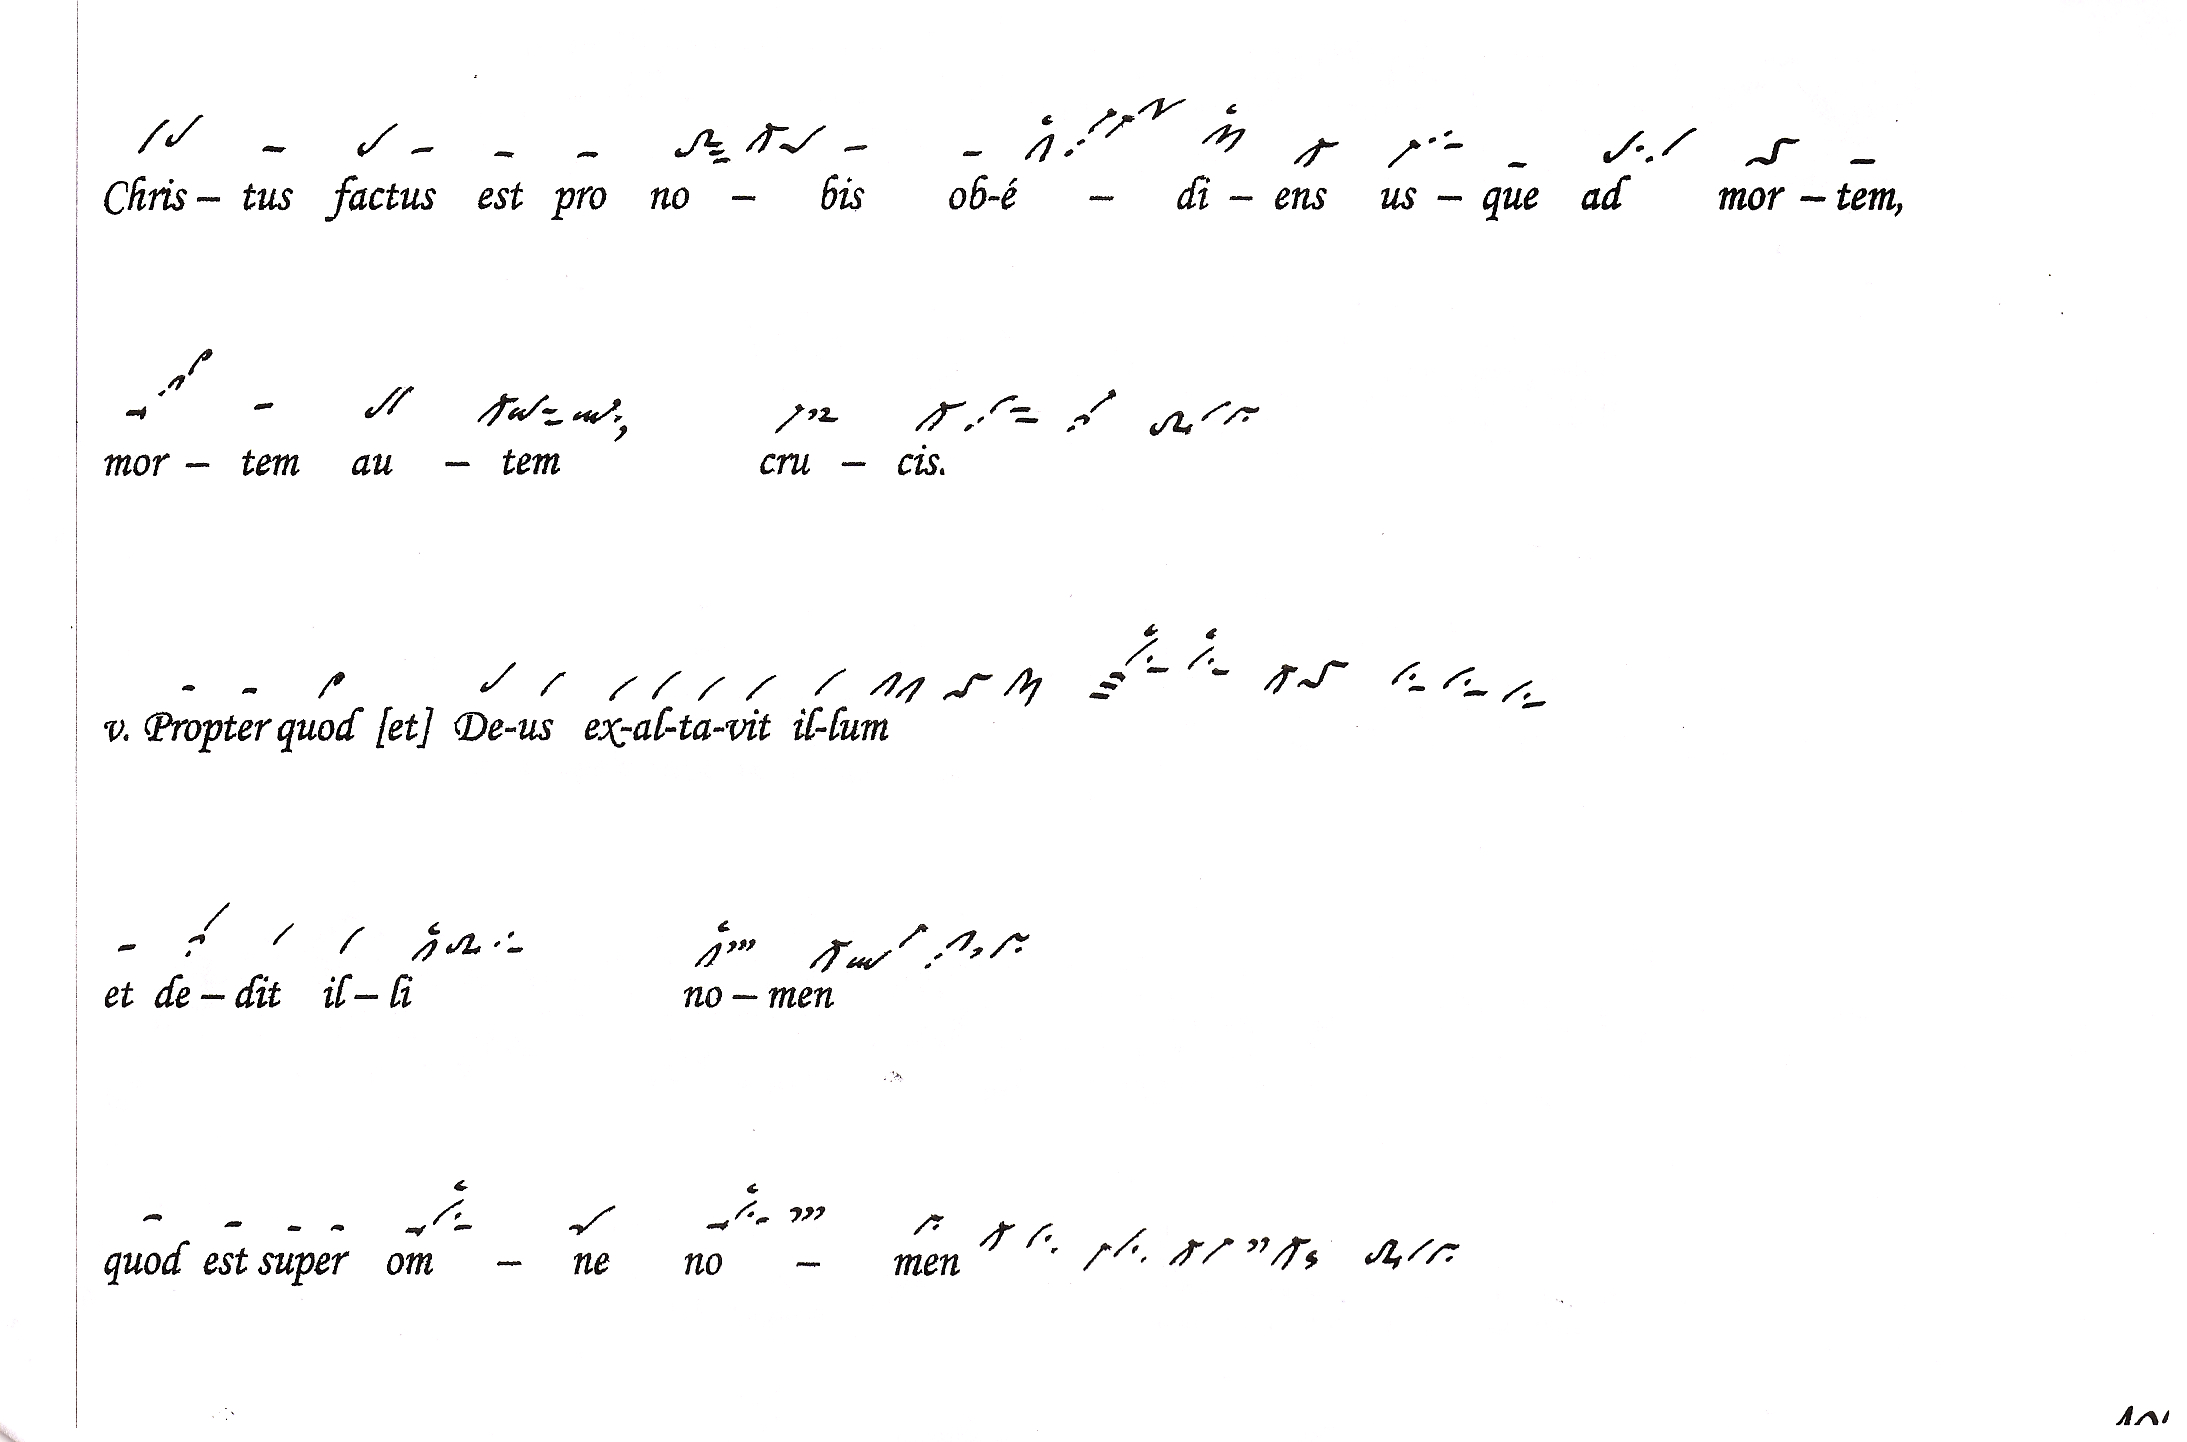 Chris – tus factus est pro no – bis ob-é – di – ens us – que ad mor – tem,
mor – tem au – tem cru – cis.
v. Propter quod [et] De-us ex-al-ta-vit il-lum
et de – dit il – li no – men
quod est super om – ne no – men